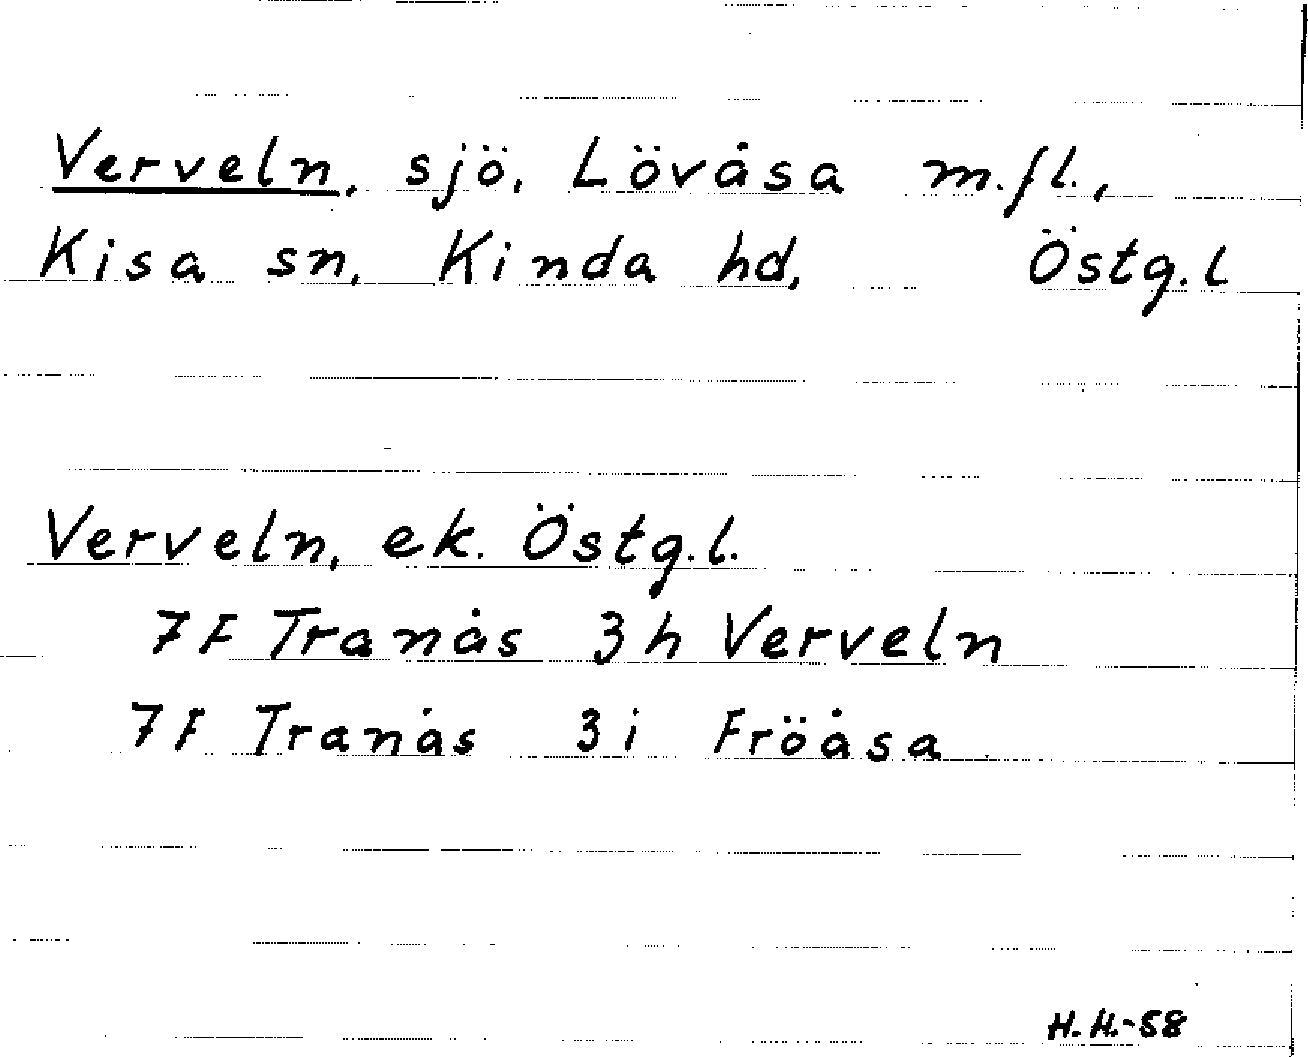 Verveln, sjö, Lövåsa m.fl.,
Kisa sn, Kinda hd, Östg.l
Verveln, ek. Östg.l.
7F Tranås 3h Verveln
7F Tranås 3i Fröåsa
H.H.-58